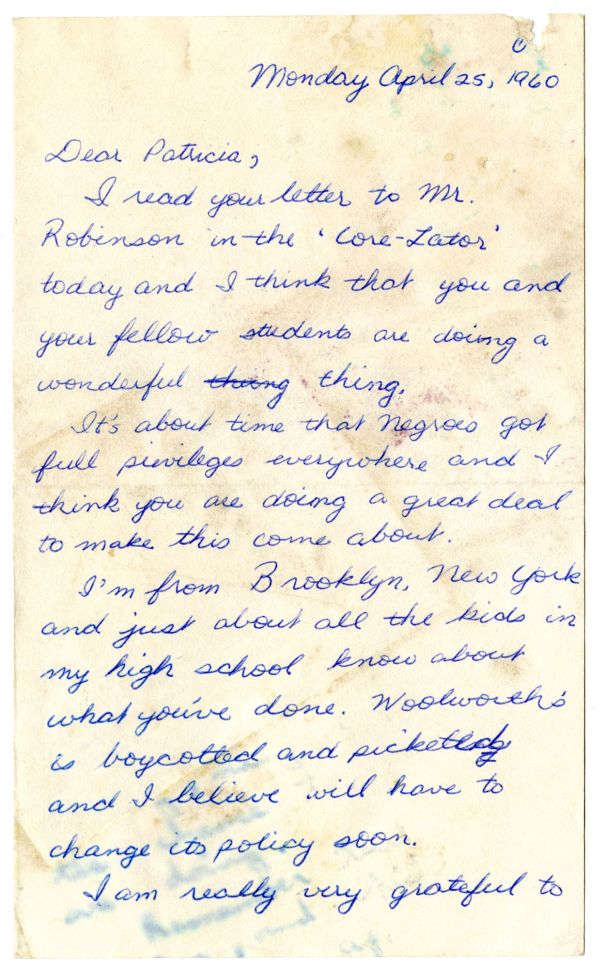 Monday April 25, 1960
Dear Patricia,
I read your letter to Mr.
Robinson in the 'Core-Lator'
today and I think that you and
your fellow students are doing a
wonderful thing thing.
It's about time that Negroes got
full privileges everywhere and I
think you are doing a great deal
to make this come about.
I'm from Brooklyn, New York
and just about all the kids in
my high school know about
what you've done. Woolworth's
is boycotted and picketed
and I believe will have to
change its policy soon.
I am really very grateful to